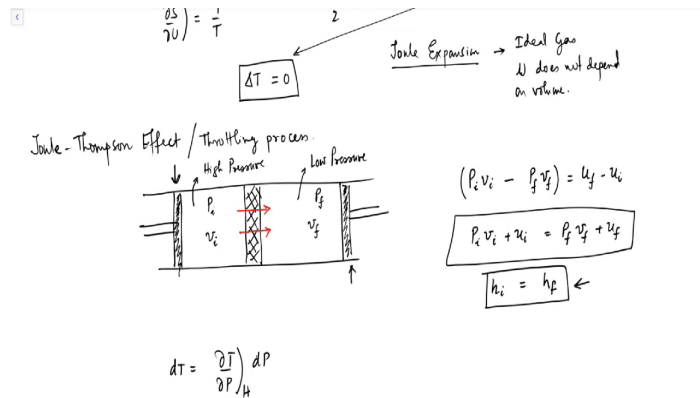 ∂S/∂U) = 1/T
2
ΔT = 0
Joule Expansion → Ideal Gas
U does not depend
on volume.
Joule-Thompson Effect / Throttling process.
High Pressure
Low Pressure
Pᵢ
vᵢ
P_f
v_f
(Pᵢvᵢ - P_f v_f) = u_f - uᵢ
Pᵢvᵢ + uᵢ = P_f v_f + u_f
hᵢ = h_f ←
dT = ∂T/∂P)_H dP